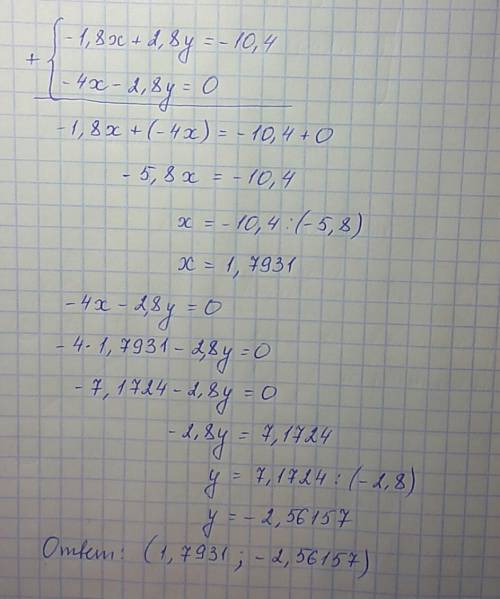 + { -1,8x + 2,8y = -10,4
-4x - 2,8y = 0
-1,8x + (-4x) = -10,4 + 0
-5,8x = -10,4
x = -10,4 : (-5,8)
x = 1,7931
-4x - 2,8y = 0
-4 · 1,7931 - 2,8y = 0
-7,1724 - 2,8y = 0
-2,8y = 7,1724
y = 7,1724 : (-2,8)
y = -2,56157
Ответ: (1,7931 ; -2,56157)